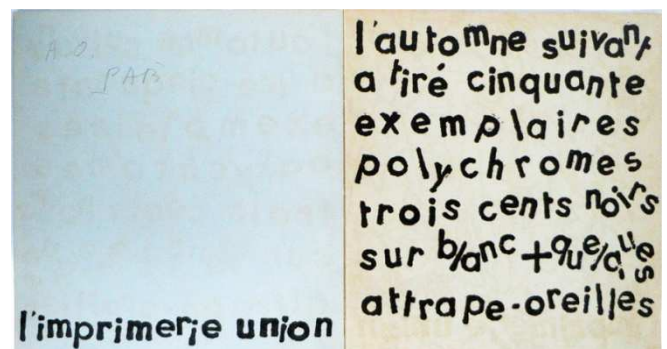 PAB
l'imprimerie union
l'automne suivant
a tiré cinquante
exemplaires
polychromes
trois cents noirs
sur blanc + quelques
attrape-oreilles